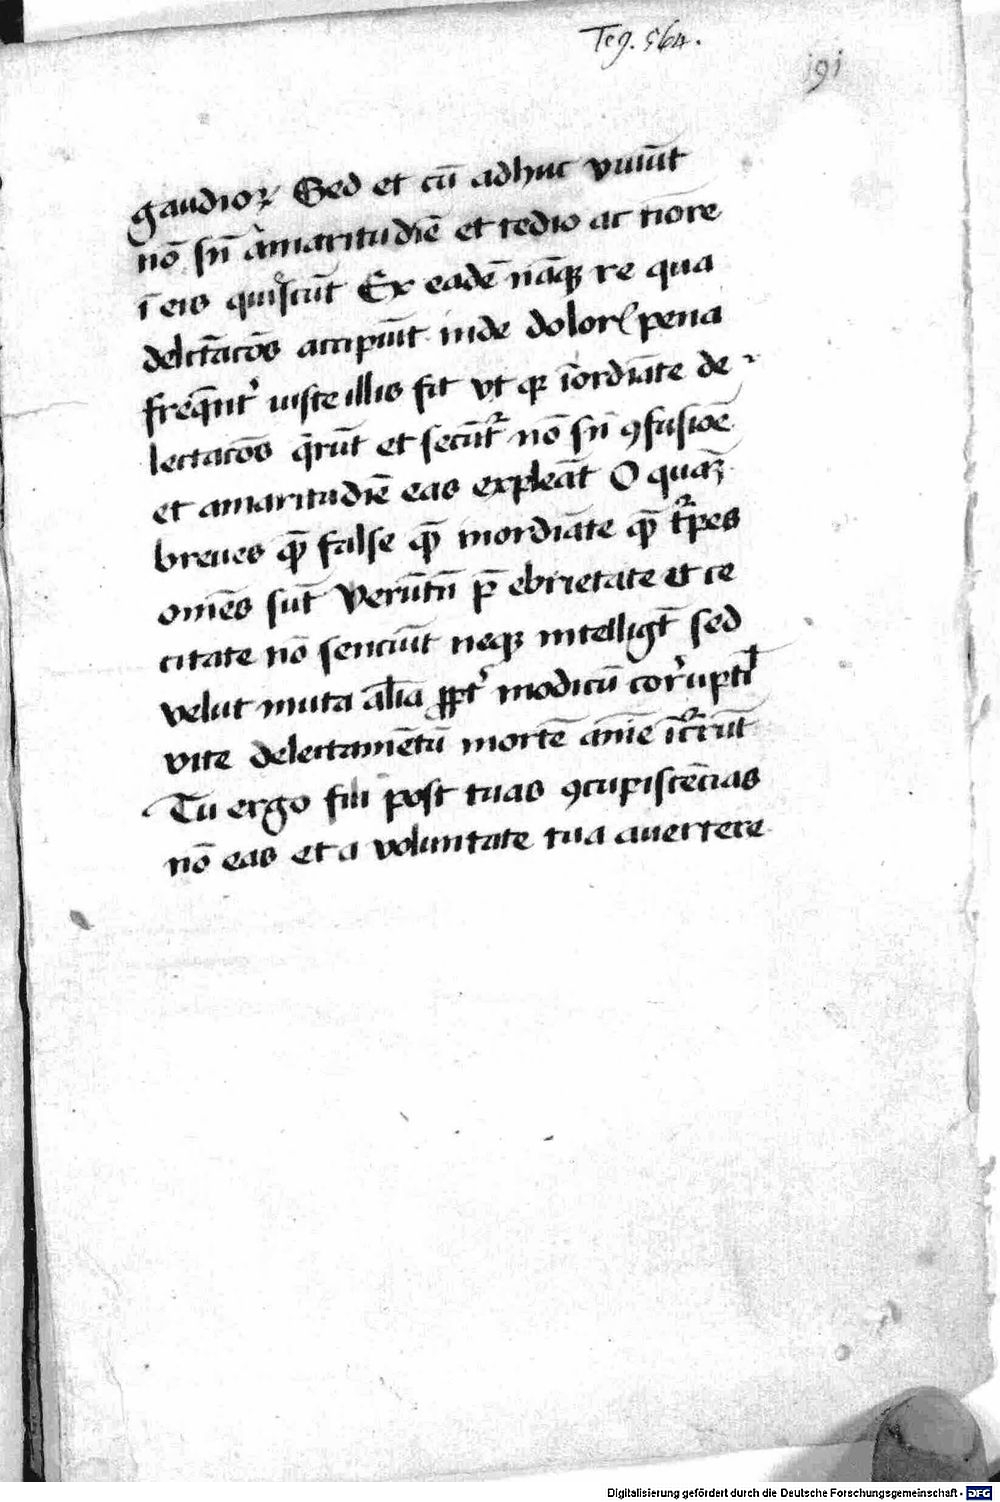 Teg. 564.
191
gaudioꝝ Sed et cū adhuc viuūt
nō sn̄ amaritudīe et tedio ac tīore
ī eis quiescūt Ex eadē nāqꝫ re qua
delc̄tacōs accipiūt inde dolorꝭ pena
freq̄nt᷑ iuste illis fit vt qꝛ īordīate de-
lectacōs q̄rūt et secūt᷑ nō sn̄ ꝯfusiōe
et amaritudīe eas expleāt O quaꝫ
breues qͫ̄ false qͫ̄ inordīate qͫ̄ t᷑pes
om̄es sūt Verūtn̄ p̄ ebrietate et ce
citate nō senciūt neqꝫ intelligūt sed
velut muta aīalia ꝓpt᷑ modicū corruptꝭ
vite delectamētū mortē aīe īcurrūt
Tu ergo fili post tuas ꝯcupiscēcias
nō eas et a voluntate tua auertere
Digitalisierung gefördert durch die Deutsche Forschungsgemeinschaft - DFG